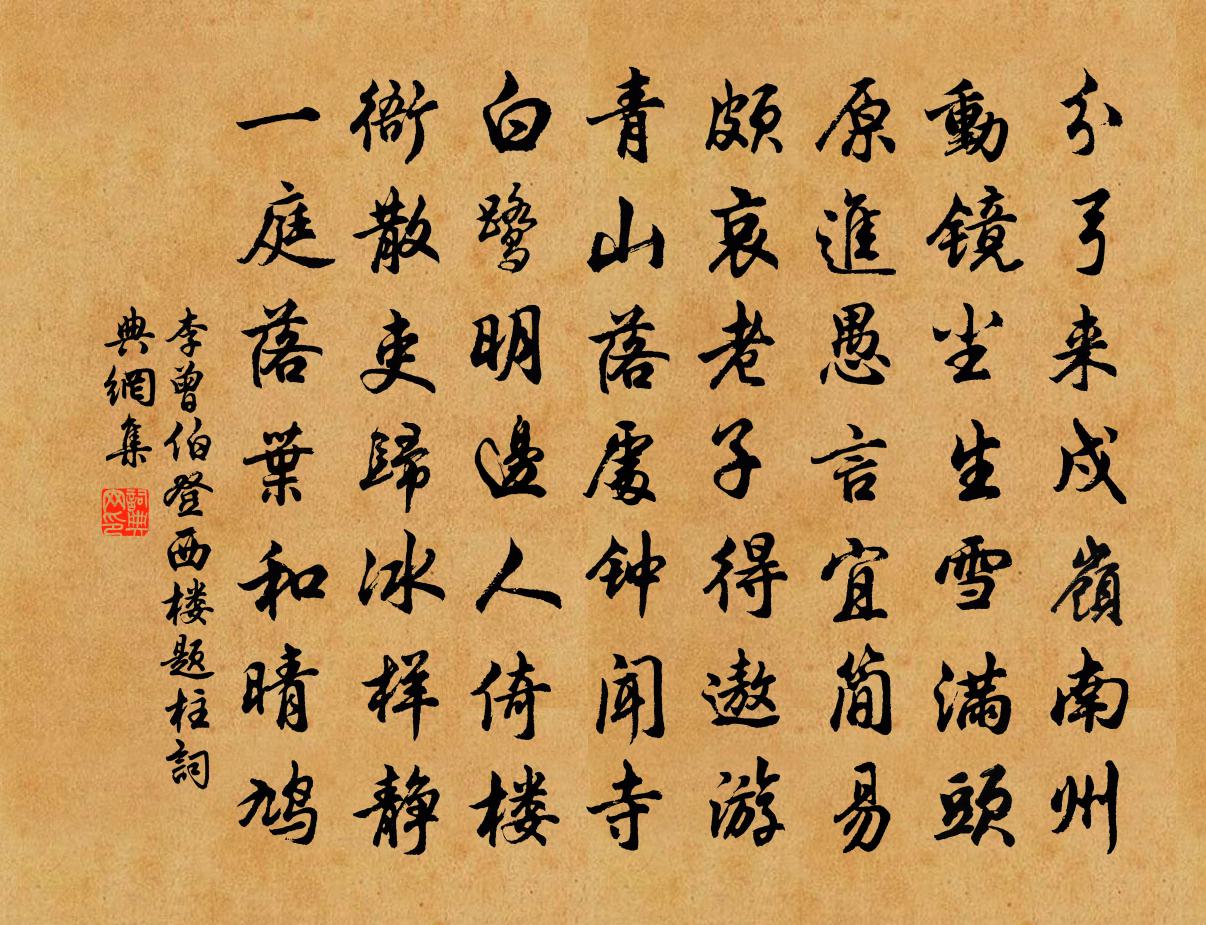 分弓来戍嶺南州
動镜尘生雪满頭
原進愚言宜简易
頗哀老子得遨游
青山落處钟闻寺
白鹭明邊人倚楼
衙散吏歸冰样静
一庭落葉和晴鸠
李曾伯登西楼题柱詞
典網集
詞典网印